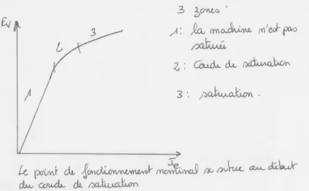 Ev
3 zones :
1 : la machine n'est pas
saturée
2 : Coude de saturation
3 : saturation.
1
2
3
Ie
Le point de fonctionnement nominal se situe au début
du coude de saturation